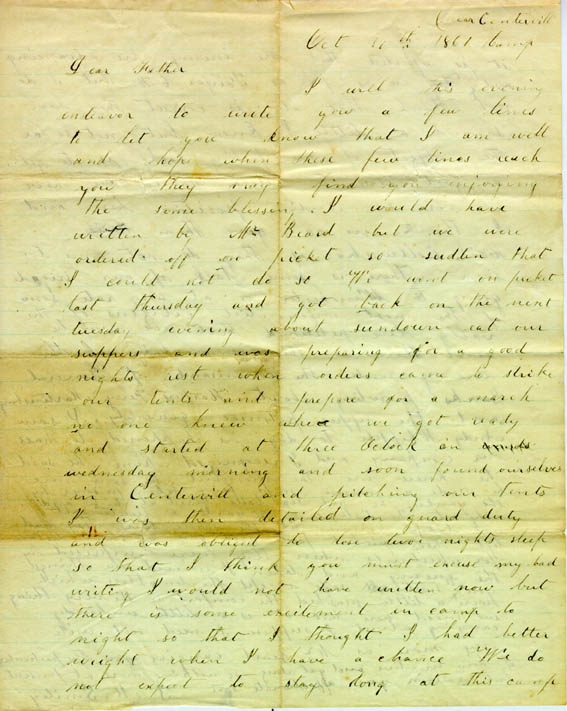 Near Centervill
Oct 20th 1861 Camp
Dear Father
I will this evening
endeavor to write you a few lines
to let you know that I am well
and hope when these few lines reach
you they may find you injoying
the same blessing. I would have
written by Mr Beard but we were
ordered off on picket so sudden that
I could not do so We went on picket
last thursday and got back on the next
tuesday evening about sundown eat our
suppers and was preparing for a good
nights rest when orders came to strike
our tents and prepare for a march
no one knew where we got ready
and started at three Oclock on
wednesday morning and soon found ourselves
in Centervill and pitching our tents
I was then detailed on guard duty
and was obliged to lose two nights sleep
so that I think you must excuse my bad
writing I would not have written now but
there is some excitement in camp to
night so that I thought I had better
wright when I have a chance We do
not expect to stay long at this camp